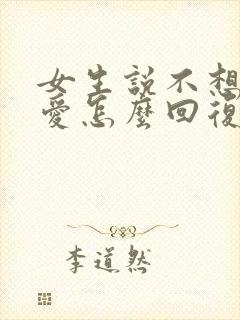 女生説不想
愛怎麼回復
李道然